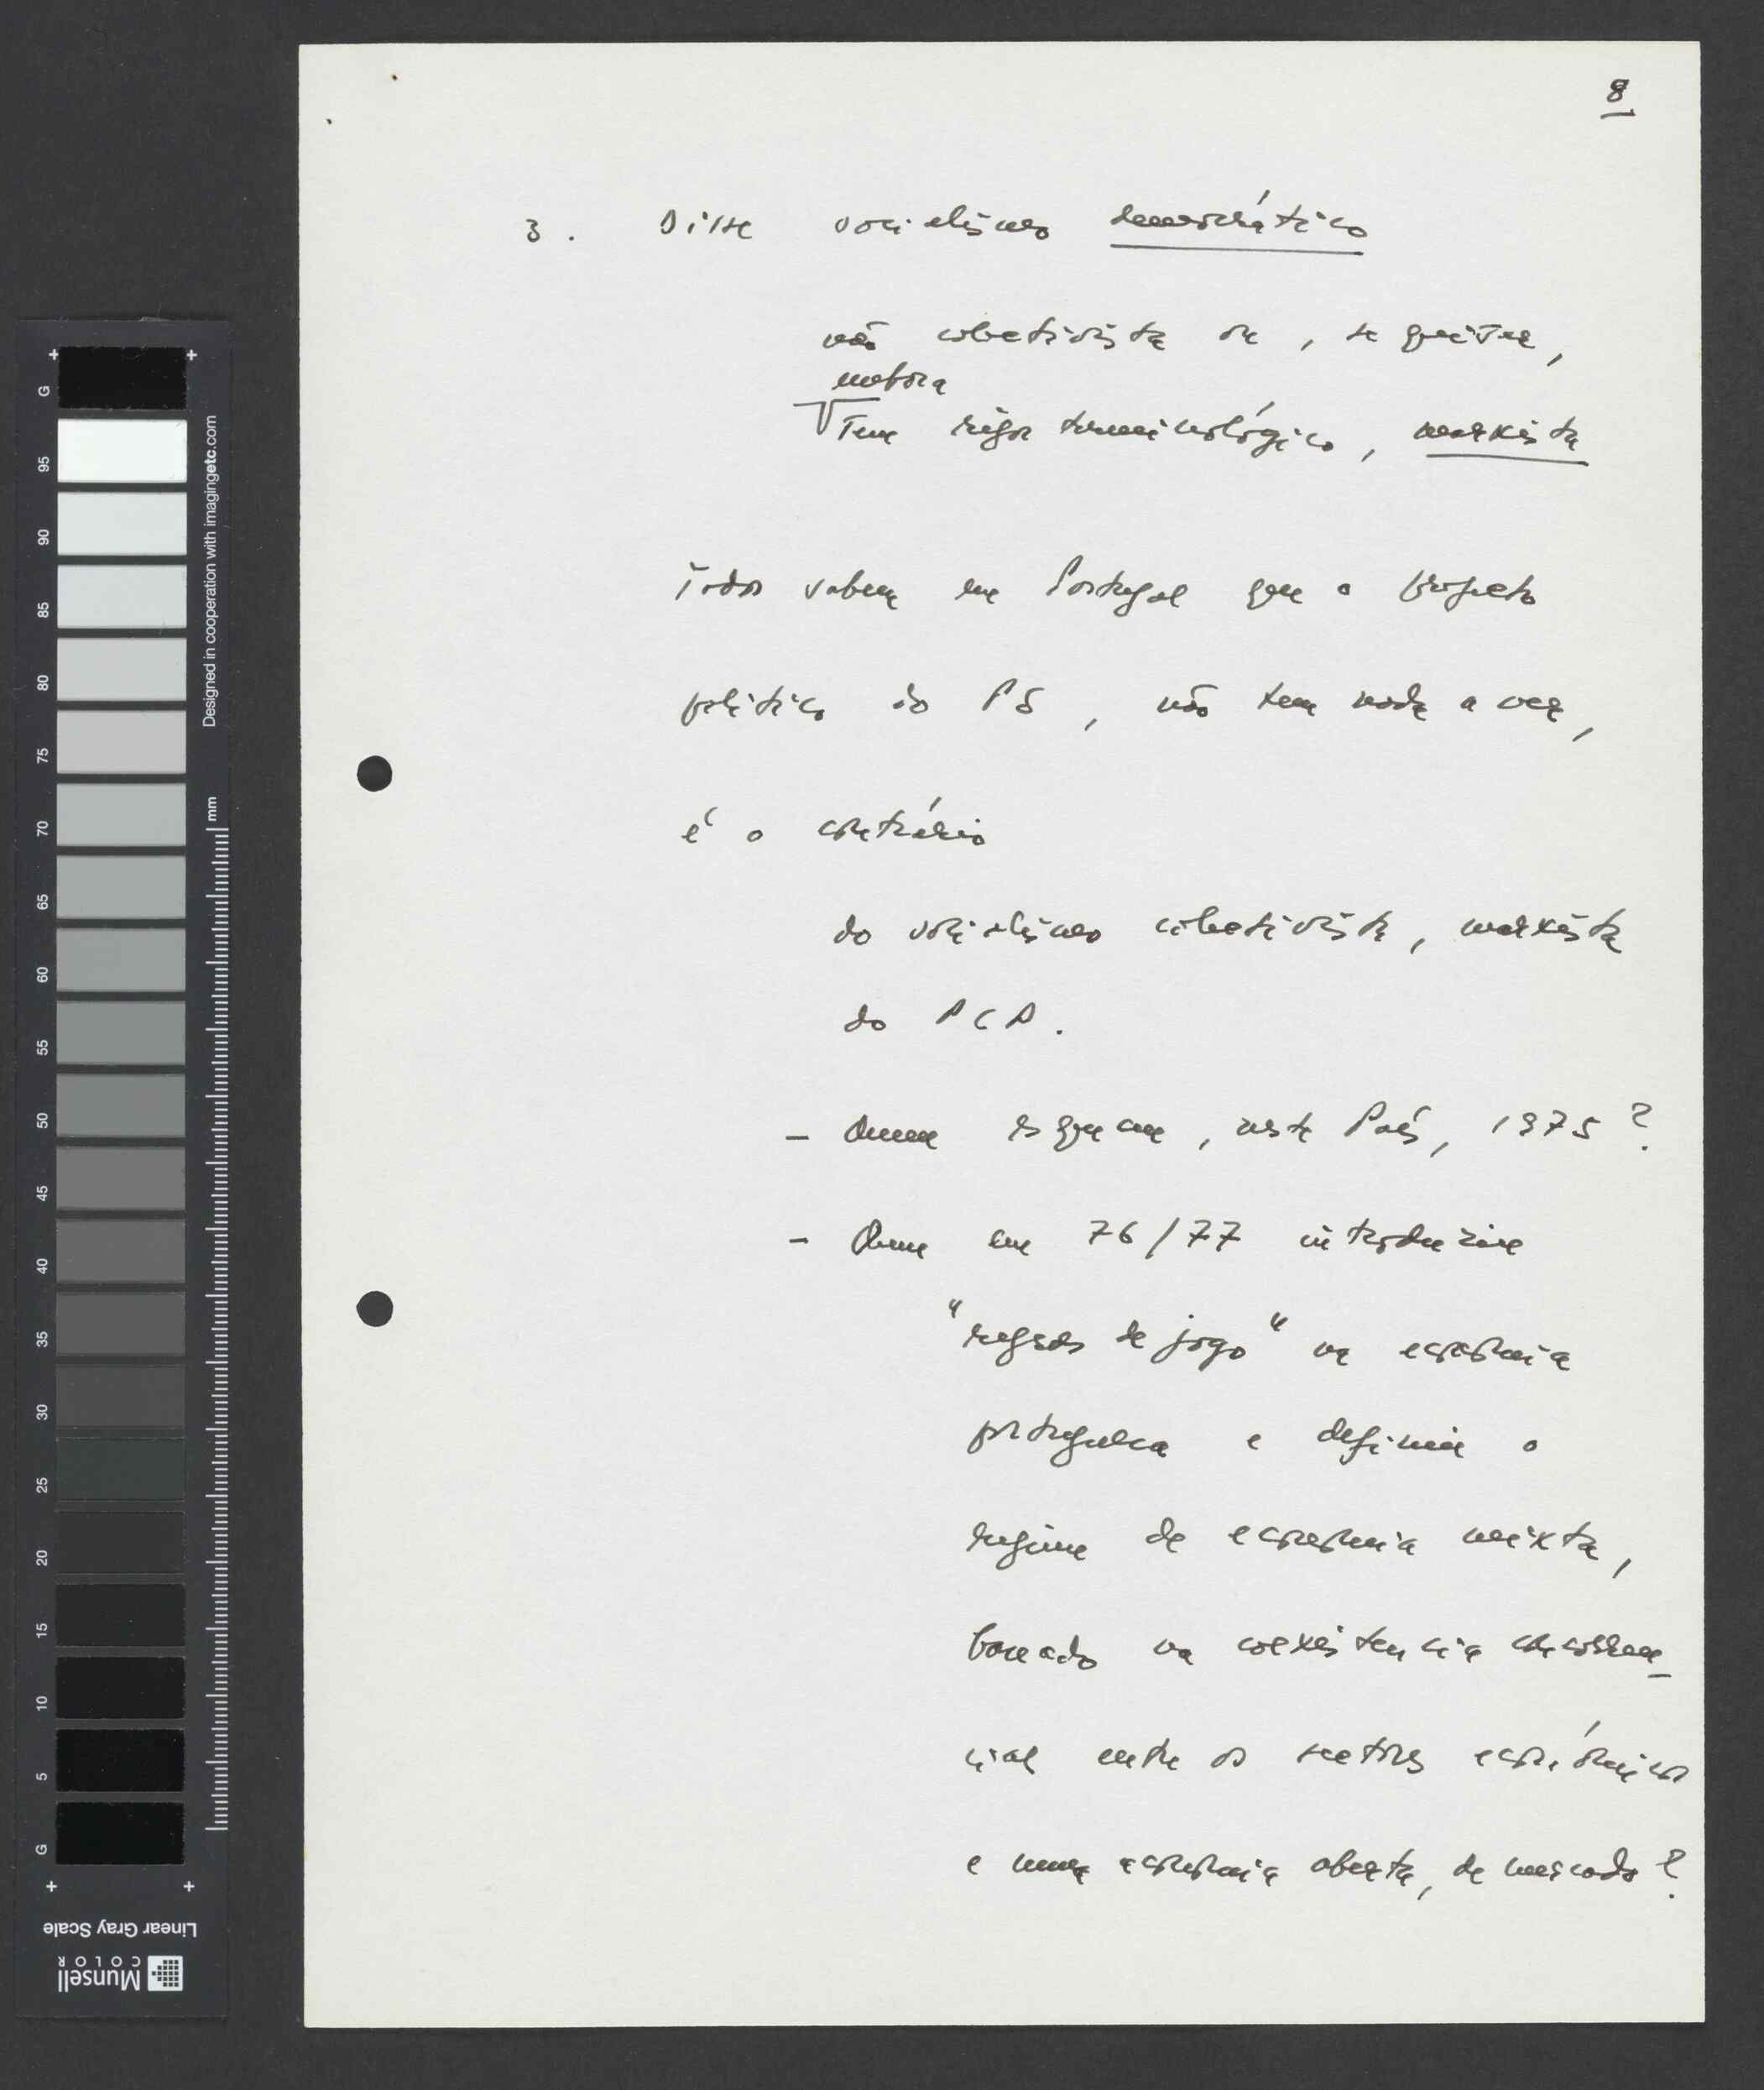 8.
3. Disse socialismo democrático
não colectivista ou, se quiser,
embora
sem rigor terminológico, marxista
Todos sabem em Portugal que o projecto
político do PS, não tem nada a ver,
é o contrário
do socialismo colectivista, marxista
do PCP.
- Quem esquece, neste País, 1975?
- Quem em 76/77 introduziu
"regras de jogo" na economia
portuguesa e definiu o
regime de economia mixta,
baseado na coexistencia concorren-
cial entre os sectores económicos
e numa economia aberta, de mercado?
G
95
90
85
80
75
70
65
60
55
50
45
40
35
30
25
20
15
10
5
G
mm
Designed in cooperation with imagingetc.com
Linear Gray Scale
Munsell
COLOR